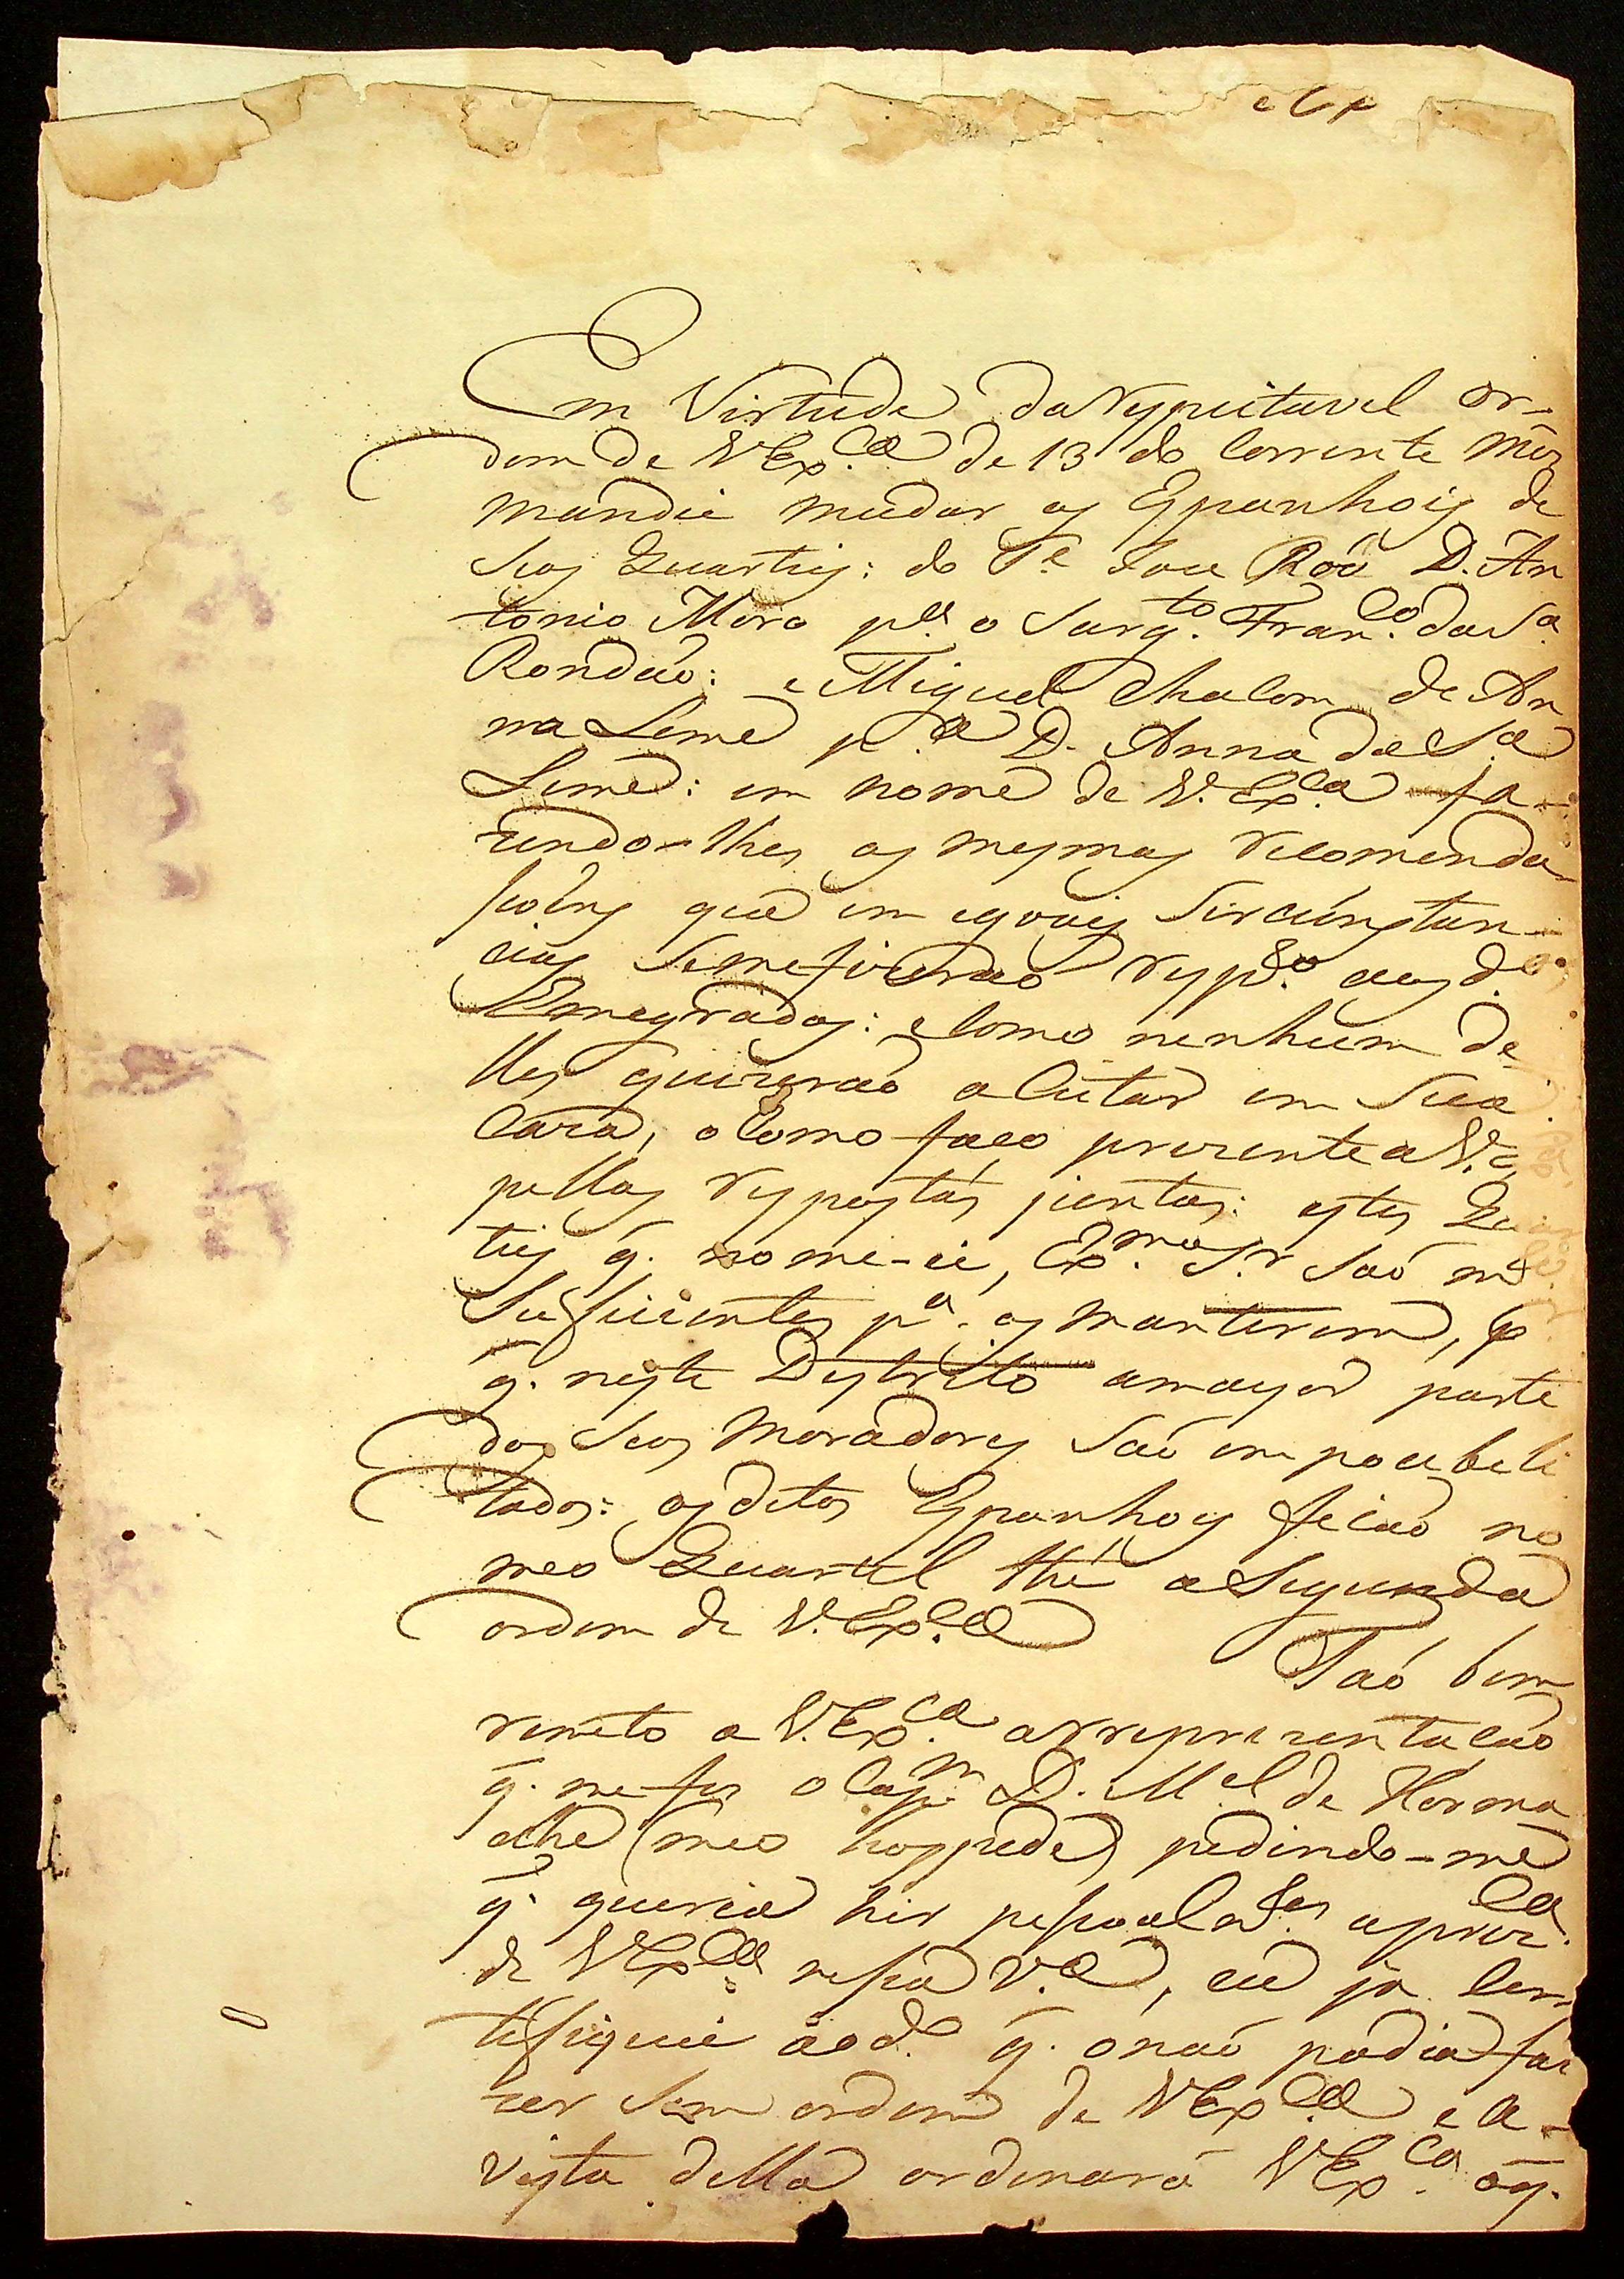 Em Virtude da respeitavel or-
dem de VExª.ca de 13 do Corrente Mez
mandei mudar os Espanhois de
seos Quarteis: do Te Joze Roiz D. An
tonio Moro pª. o Sargto. Franco. da Sª.
Rondaõ: e Miguel Chalom de An
na Leme pª D. Anna da Sª
Leme: em nome de V.Exca. fa-
zendo-lhes as mesmas recomenda
soens que em egoais Sircunstan-
cias Se me fizeraõ respto. aos dos.
Emegrados: e Como nenhum de
lles quizeraõ aCeitar em Sua
Caza, o Como faço prezente a V.E
pellas respostas juntas: estes Quar
teis q̃. nome-ei, Exmo. Sr. Saõ os
Suficientes pª. os manterem, p
q̃. neste Destrito amayor parte
dos Seos Moradores Saõ empocebeli
tados: os ditos Espanhoes ficaõ no
meo Quartel thé a Segunda
ordem de V.Exca
Taõ bem
remeto a V.Exca. arreprezentaçaõ
q̃. me fes o Capm D. Mel de Horma
eche (meo hospede) pedindo-me
q̃. queria hir pessoalmte. aprezca.
de VExca. nessa Vª, eu ja Cer
tefiquei ao do. q̃. onaõ podia fa
zer Sem ordem de VExca. e a-
vista della ordenará VExca. oq̃.